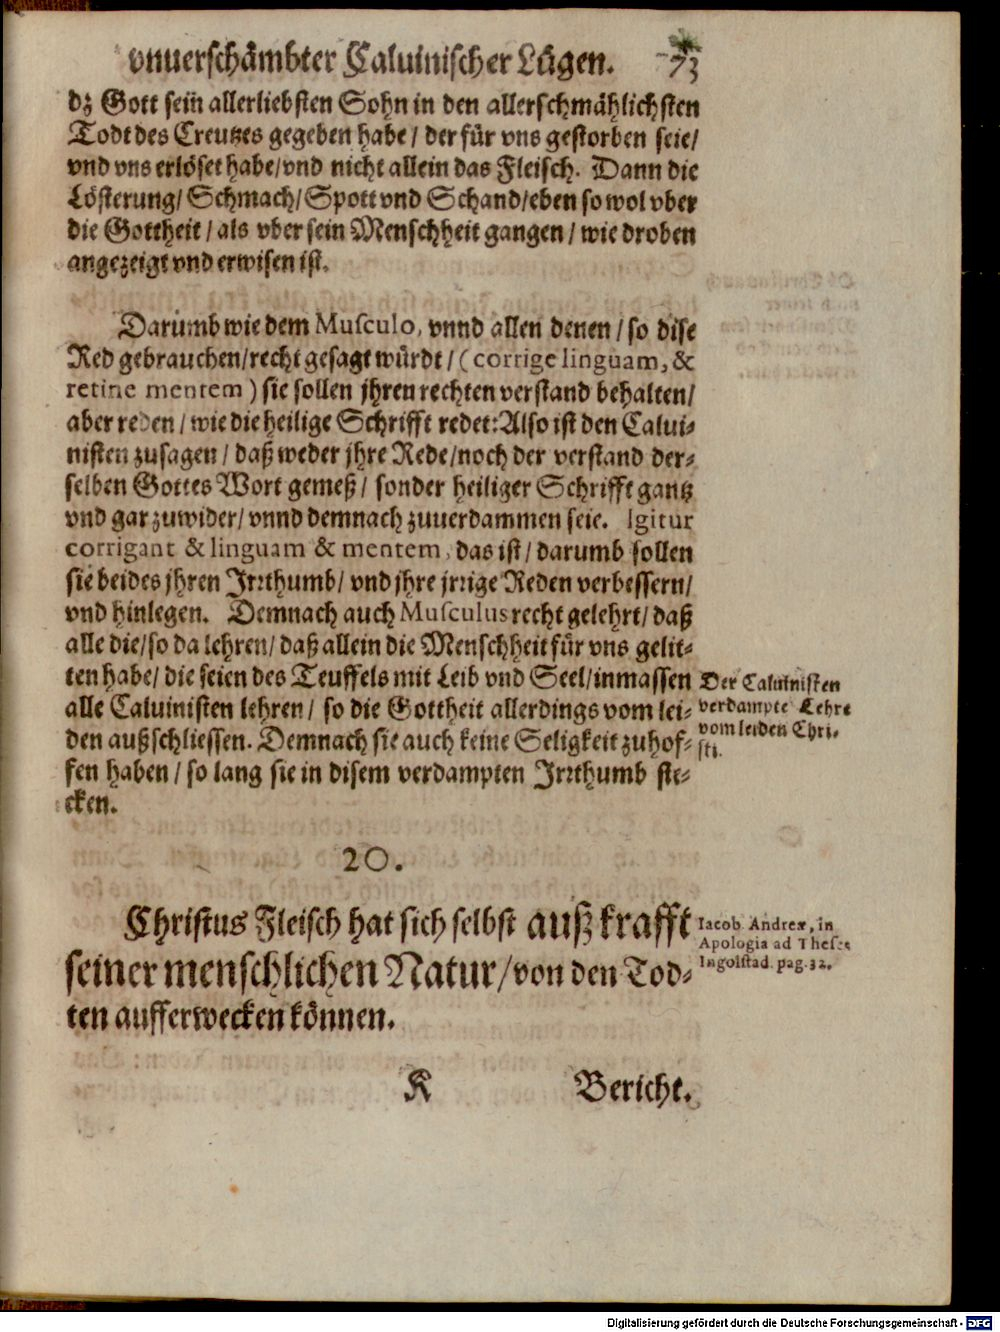 vnuerschämbter Caluinischer Lügen. 73
dz Gott sein allerliebsten Sohn in den allerschmählichsten
Todt des Creutzes gegeben habe / der für vns gestorben seie /
vnd vns erlöset habe / vnd nicht allein das Fleisch. Dann die
Lösterung / Schmach / Spott vnd Schand / eben so wol vber
die Gottheit / als vber sein Menschheit gangen / wie droben
angezeigt vnd erwisen ist.
Darumb wie dem Musculo, vnnd allen denen / so dise
Red gebrauchen / recht gesagt würdt / ( corrige linguam, &
retine mentem ) sie sollen jhren rechten verstand behalten /
aber reden / wie die heilige Schrifft redet: Also ist den Calui⸗
nisten zusagen / daß weder jhre Rede / noch der verstand der⸗
selben Gottes Wort gemeß / sonder heiliger Schrifft gantz
vnd gar zuwider / vnnd demnach zuuerdammen seie. Igitur
corrigant & linguam & mentem, das ist / darumb sollen
sie beides jhren Jrrthumb / vnd jhre jrrige Reden verbessern /
vnd hinlegen. Demnach auch Musculus recht gelehrt / daß
alle die / so da lehren / daß allein die Menschheit für vns gelit⸗
ten habe / die seien des Teuffels mit Leib vnd Seel / inmassen
alle Caluinisten lehren / so die Gottheit allerdings vom lei⸗
den außschliessen. Demnach sie auch keine Seligkeit zuhof⸗
fen haben / so lang sie in disem verdampten Jrrthumb ste⸗
cken.
Der Caluinisten
verdampte Lehre
vom leiden Chri⸗
sti.
20.
Christus Fleisch hat sich selbst auß krafft
seiner menschlichen Natur / von den Tod⸗
ten aufferwecken können.
Iacob. Andreæ, in
Apologia ad Theses
Ingolstad. pag. 32.
K Bericht.
Digitalisierung gefördert durch die Deutsche Forschungsgemeinschaft - DFG